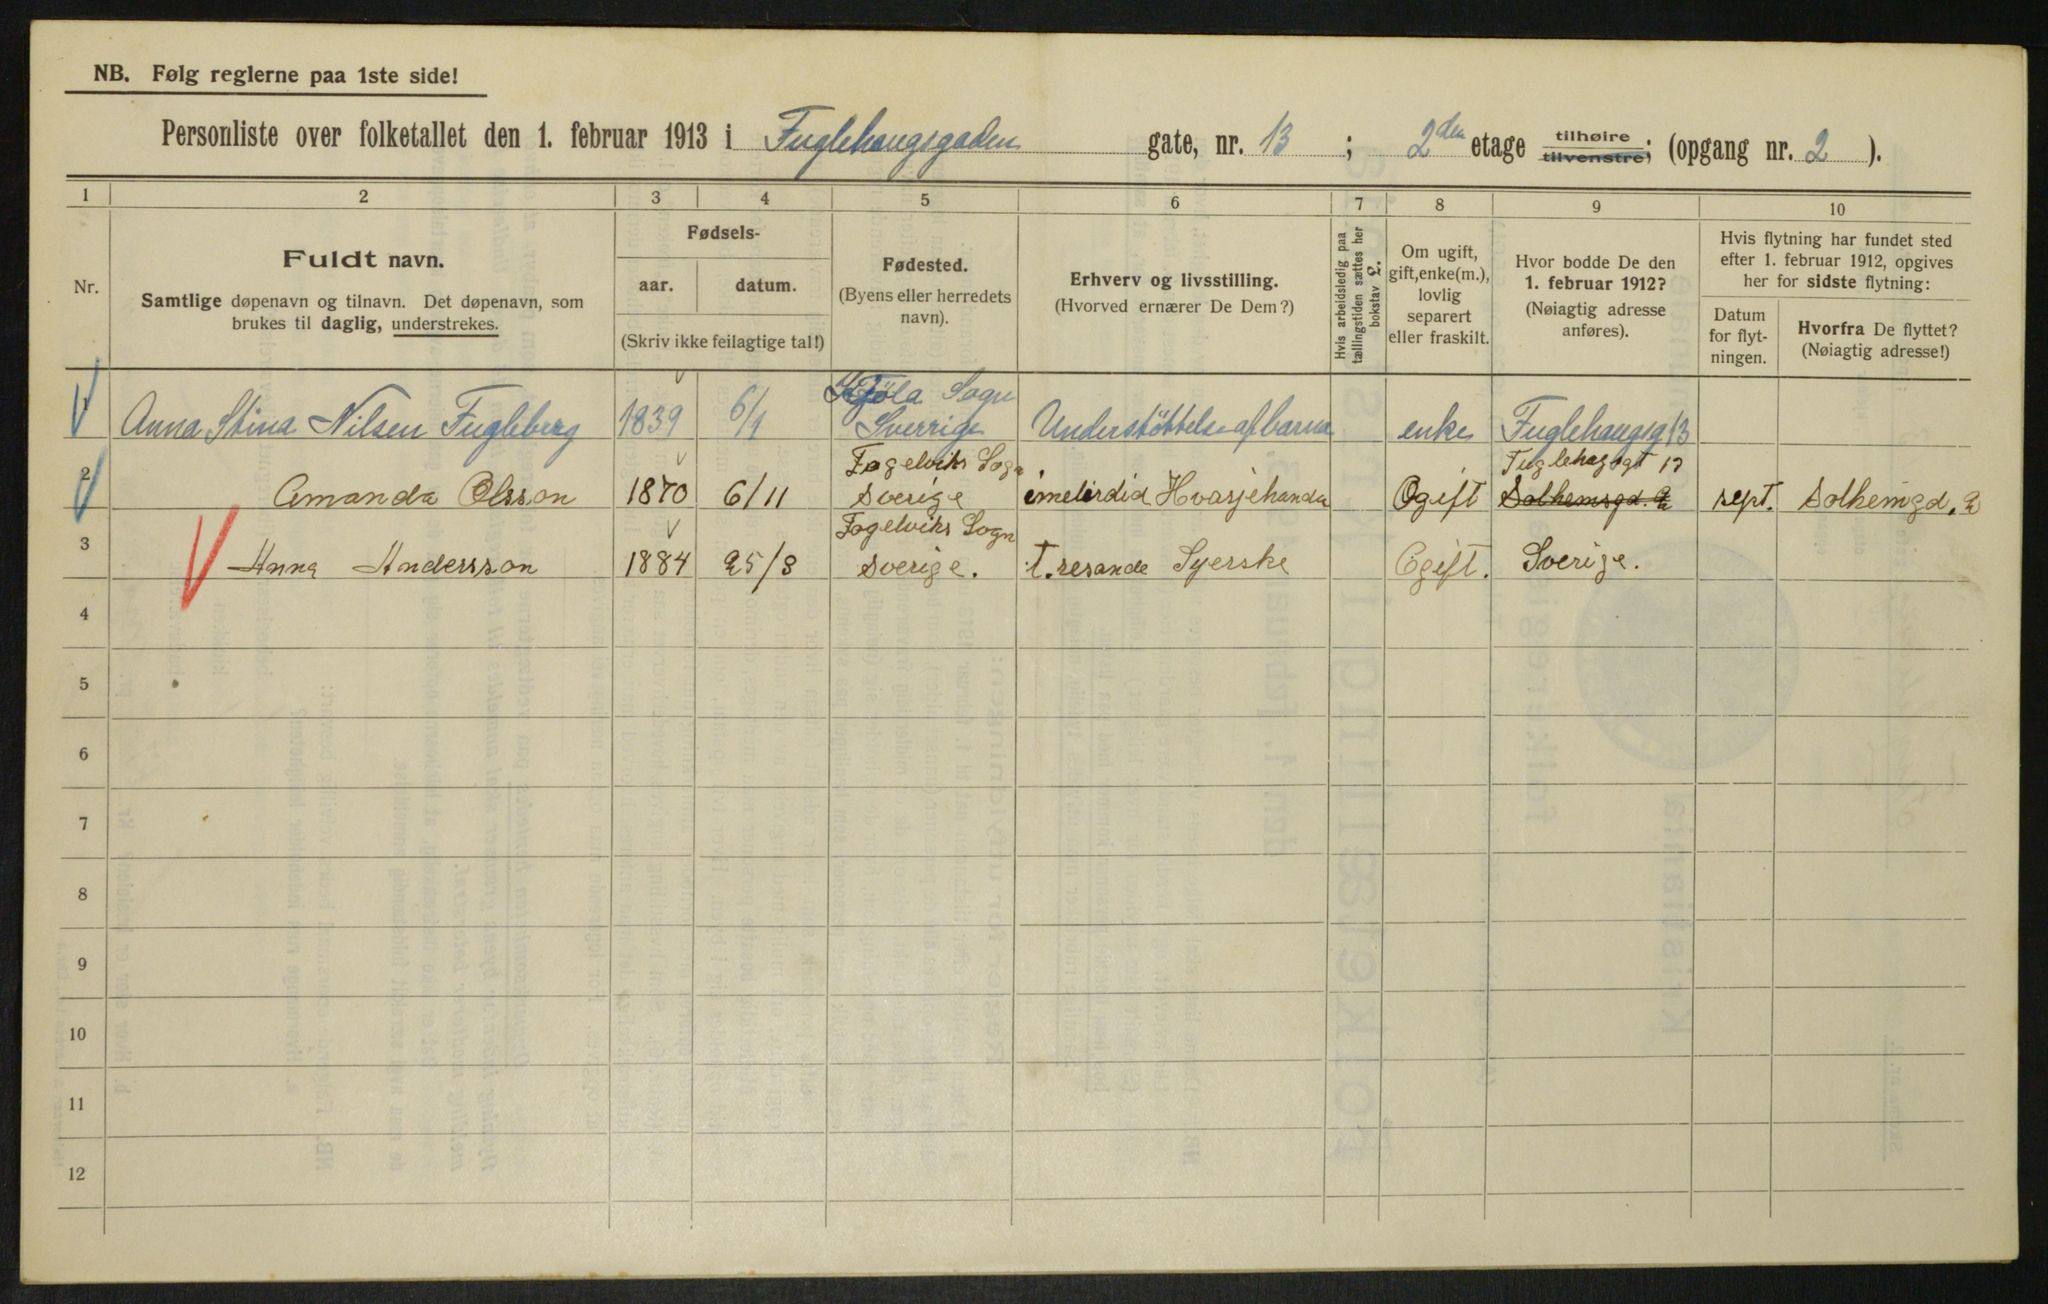 NB. Følg reglerne paa 1ste side!
Personliste over folketallet den 1. februar 1913 i Fuglehaugsgaden gate, nr. 13 ; 2den etage tilhøire tilvenstre; (opgang nr. 2 ).
1 2 3 4 5 6 7 8 9 10
Nr.
Fuldt navn.
Samtlige døpenavn og tilnavn. Det døpenavn, som
brukes til daglig, understrekes.
Fødsels-
aar. datum.
(Skriv ikke feilagtige tal!)
Fødested.
(Byens eller herredets
navn).
Erhverv og livsstilling.
(Hvorved ernærer De Dem?)
Hvis arbeidsledig paa
tællingstiden sættes her
bokstav L.
Om ugift,
gift, enke(m.),
lovlig
separert
eller fraskilt.
Hvor bodde De den
1. februar 1912?
(Nøiagtig adresse
anføres).
Hvis flytning har fundet sted
efter 1. februar 1912, opgives
her for sidste flytning:
Datum
for flyt-
ningen.
Hvorfra De flyttet?
(Nøiagtig adresse!)
1 Anna Stina Nilsen Fugleberg 1839 6/1 Sogn Sverrige Understöttelse af barna enke Fuglehaugsg 13
2 Amanda Olsson 1870 6/11 Fogelviks Sogn Sverige Ogift Solhemsgd. 2 sept. Solhemgd. 2
3 Anna Andersson 1884 25/3 Fogelviks Sogn Sverige. t. resande Syerske Ogift. Sverige.
4
5
6
7
8
9
10
11
12